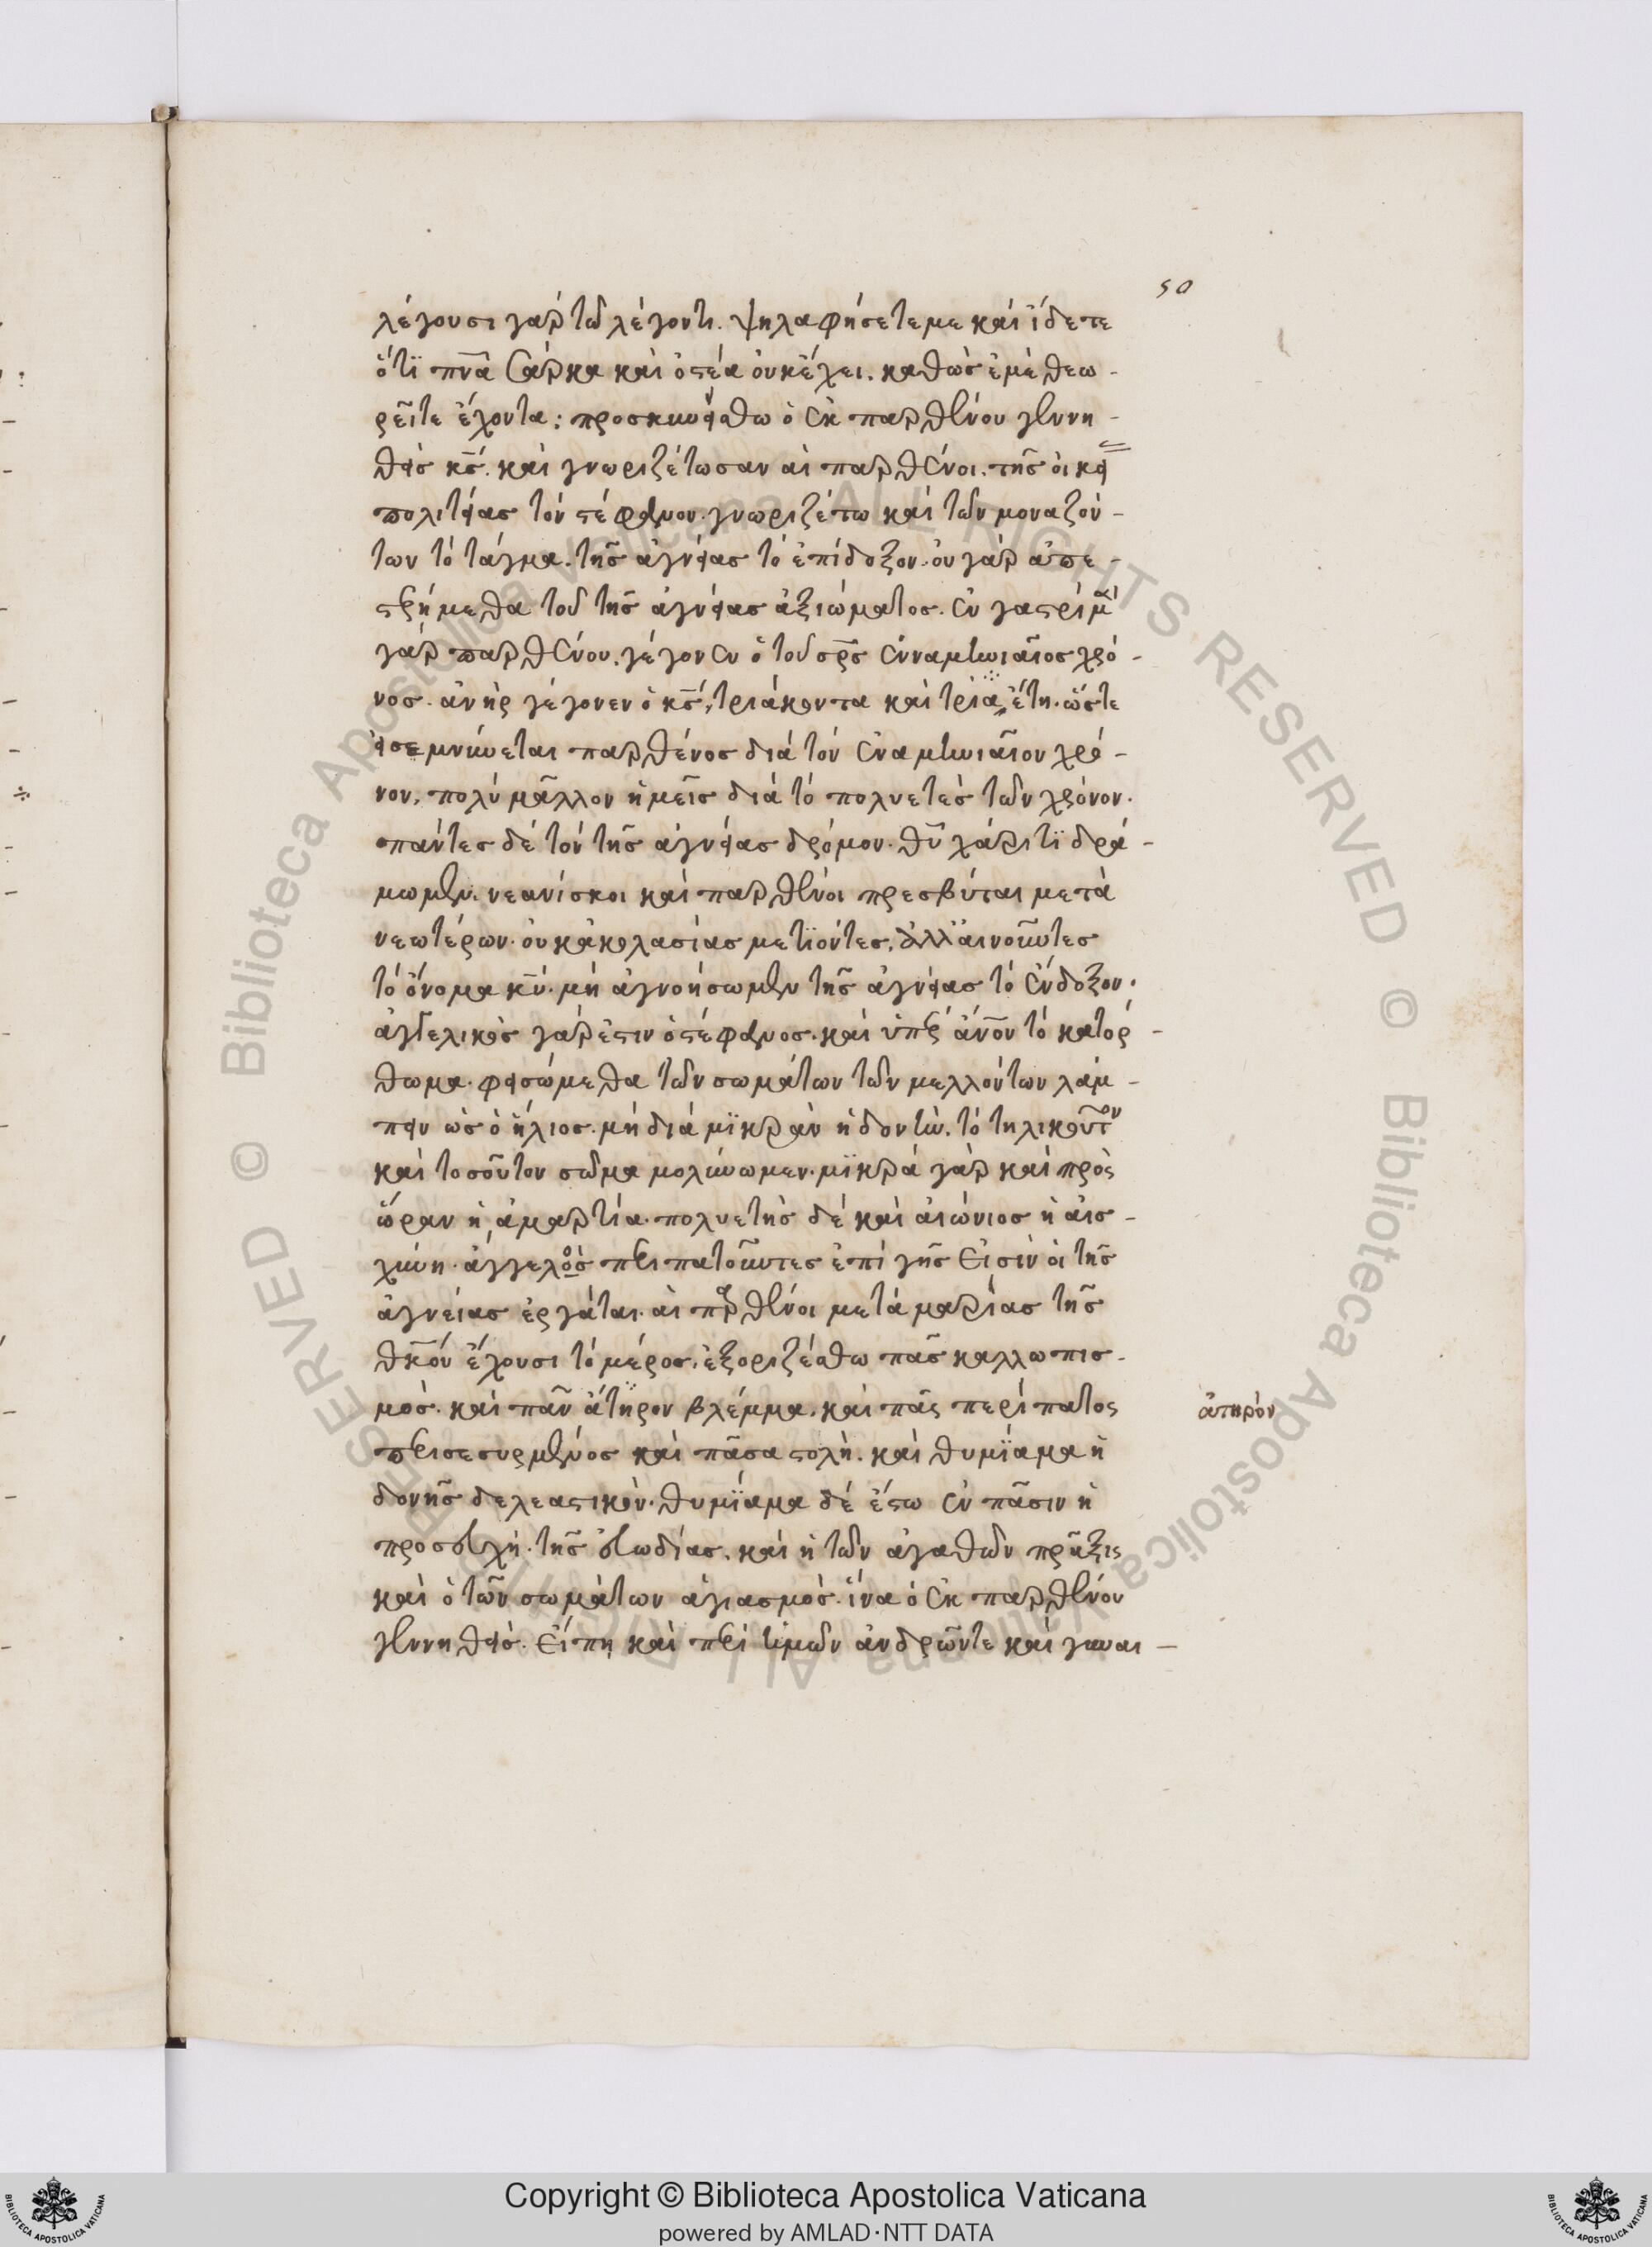 50
λέγουσι γὰρ τῶ λέγοντι. ψηλαφήσετε με καὶ ἴδετε
ὅτϊ πνᾶ σάρκα καὶ ὀστέα οὐκ ἔχει. καθὼς ἐμὲ θεω -
ρεῖτε ἔχοντα: προσκυνείσθω ὁ ἐκ παρθένου γεννη -
θεὶς κς̄. καὶ γνωριζέτωσαν αἱ παρθένοι. τῆς οἰκεί
πολιτείας τὸν στέφανον. γνωριζέτω καὶ τῶν μοναζόν -
των τὸ τάγμα. τῆς ἁγνείας τὸ ἐπίδοξον. οὐ γὰρ ἀπε -
στερήμεθα τοῦ τῆς ἁγνείας ἀξιώματος. ἐν γαστρὶ μὲν
γὰρ παρθένου. γέγονεν ὁ τοῦ σρ̄ς ἐνναμηνιαῖος χρό -
νος. ἀνὴρ γέγονεν ὁ κς̄, τριάκοντα καὶ τρία ἔτη. ὥστε
εἰ σεμνύνεται παρθένος διὰ τὸν ἐναμηνιαῖον χρό -
νον, πολὺ μᾶλλον ἡμεῖς διὰ τὸ πολυετὲς τῶν χρόνον.
πάντες δὲ τὸν τῆς ἁγνείας δρόμον. θῡ χάριτϊ δρά -
μωμεν. νεανίσκοι καὶ παρθένοι πρεσβύται μετὰ
νεωτέρων. οὐκ ἀκολασίας μετϊόντες. ἀλλ' αἰνοῦντες
τὸ ὄνομα κῡ. μὴ ἀγνοήσωμεν τῆς ἁγνείας τὸ ἔνδοξον.
ἀγγελικὸς γάρ ἐστιν ὁ στέφανος. καὶ ὑπὲρ ἄνο̄ν τὸ κατόρ -
θωμα. φεισώμεθα τῶν σωμάτων τῶν μελλόντων λάμ -
πειν ὡς ὁ ἥλιος. μὴ διὰ μϊκρὰν ἡδονὴν. τὸ τηλικοῦτον
καὶ τοσοῦτον σῶμα μολύνωμεν. μϊκρὰ γὰρ καὶ πρὸς
ὥραν ἡ ἁμαρτία. πολυετὴς δὲ καὶ αἰώνιος ἡ αἰσ -
χύνη. ἄγγελοὸς περιπατοῦντες ἐπὶ γῆς εἰσὶν οἱ τῆς
ἁγνείας ἐργάται. αἱ παρθένοι μετὰ μαρίας τῆς
θκ̄ου ἔχουσι τὸ μέρος. ἐξοριζέσθω πᾶς καλλωπισ -
μὸς. καὶ πᾶν ἄτηρον βλέμμα. καὶ πᾶς περίπατος
περισεσυρμένος καὶ πᾶσα στολὴ. καὶ θυμϊαμα ἡ
δονῆς δελεαστικὸν. θυμϊαμα δὲ ἔστω ἐν πᾶσιν ἡ
προσευχὴ. τῆς εὐωδίας. καὶ ἡ τῶν ἀγαθῶν πρᾶξις
καὶ ὁ τῶν σωμάτων ἁγιασμὸς. ἵνα ὁ ἐκ παρθένου
γεννηθεὶς. εἴπη καὶ περὶ ἡμῶν ἀνδρῶν τε καὶ γυναι -
ἀτηρὸν
© Biblioteca Apostolica Vaticana ALL RIGHTS RESERVED
© Biblioteca Apostolica Vaticana ALL RIGHTS RESERVED
Copyright © Biblioteca Apostolica Vaticana
powered by AMLAD·NTT DATA
BIBLIOTECA APOSTOLICA VATICANA
BIBLIOTECA APOSTOLICA VATICANA